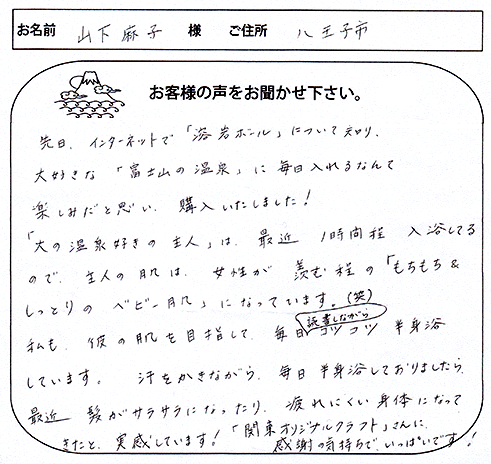 お名前 山下麻子 様 ご住所 八王子市
お客様の声をお聞かせ下さい。
先日、インターネットで「溶岩ボール」について知り、
大好きな「富士山の温泉」に毎日入れるなんて
楽しみだと思い、購入いたしました!
「大の温泉好きの主人」は、最近 1時間程 入浴してる
ので、主人の肌は、女性が 羨む程の「もちもち&
しっとりの ベビー肌」になっています。(笑)
私も、彼の肌を目指して、毎日 読書しながら コツコツ 半身浴
しています。 汗をかきながら、毎日 半身浴しておりましたら、
最近 髪がサラサラになったり、疲れにくい身体になって
きたと、実感しています!「関東オリジナルクラフト」さんに、
感謝の気持ちで、いっぱいです!